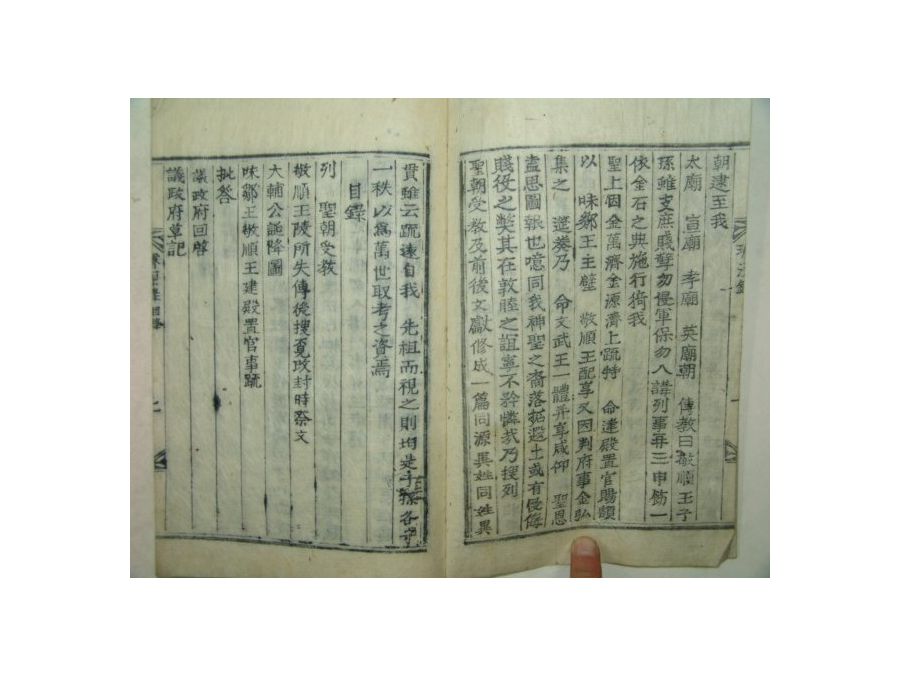 朝建至我
太廟 宣廟 孝廟 英廟朝 傳教曰敬順王子
孫雖支庶賤孼勿侵軍保勿入講列事再三申飭一
依金石之典施行猗我
聖上個金萬濟金源濟上疏特 命建殿置官賜額
以 味鄒王主壁 敬順王配享又因判府事金弘
集之 筵奏乃 命文武王一體并享咸仰 聖恩
盍思圖報也噫同我神聖之裔落拓遐土或有侵侮
賤役之獘其在敦睦之誼寧不矜憐哉乃搜列
聖朝受教及前後文獻修成一篇同源異姓同姓異
貫雖云疏遠自我 先祖而視之則均是子孫各守
一秩以爲萬世取考之資焉
目錄
列 聖朝受教
敬順王陵所失傳後搜覔改封時祭文
大輔公誕降圖
味鄒王敬順王建殿置官事䟽
批答
議政府回啓
議政府草記